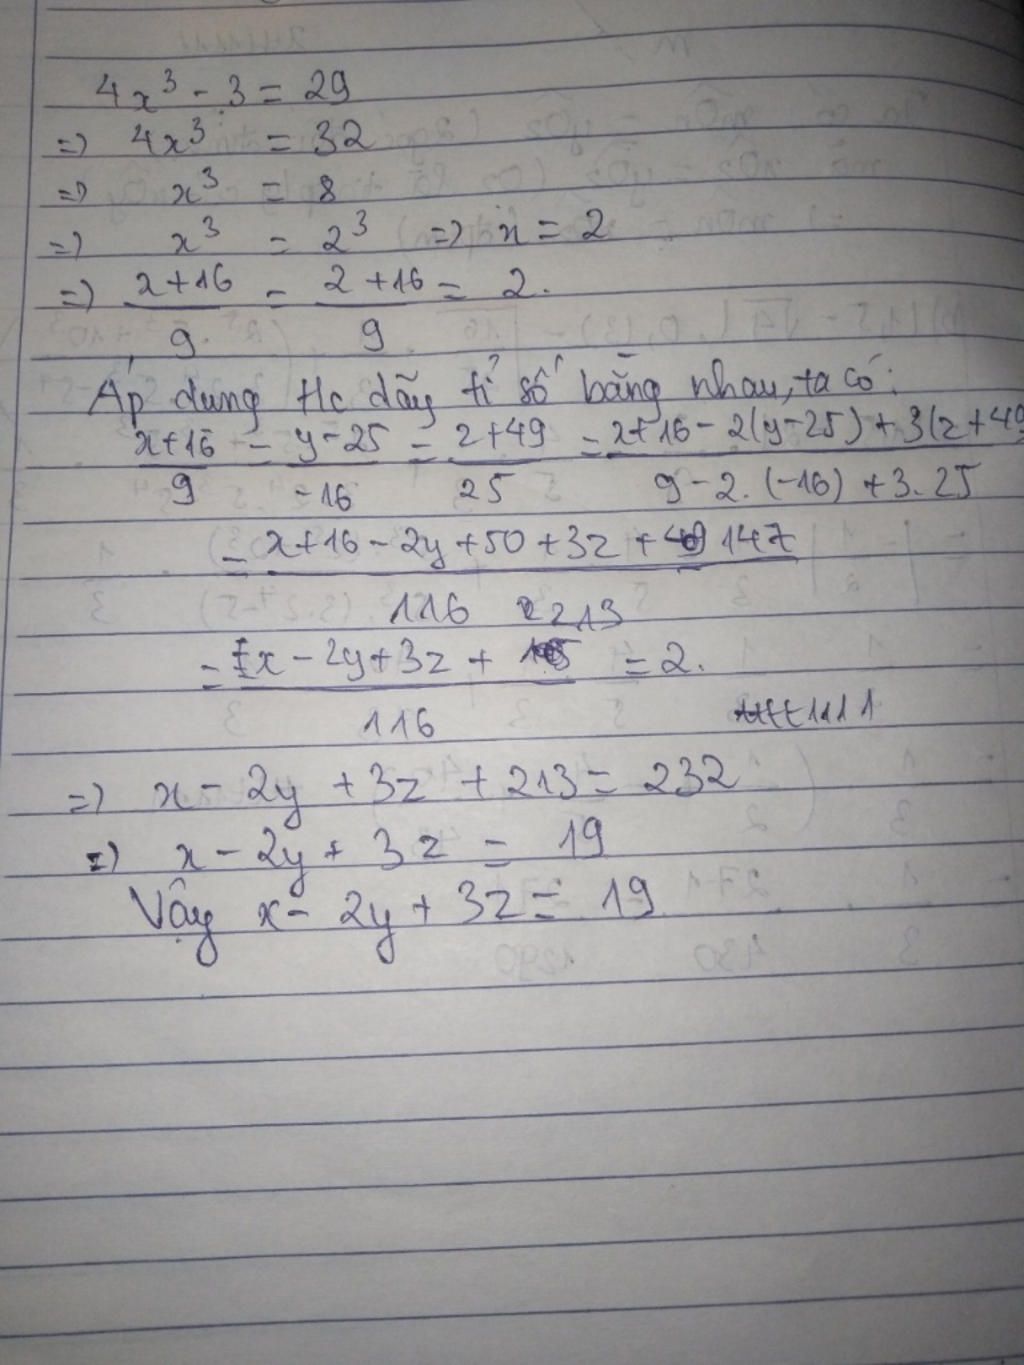 4x³ - 3 = 29
=> 4x³ = 32
=> x³ = 8
=> x³ = 2³ => x = 2
=> x+16 = 2+16 = 2.
9 9
Áp dụng t/c dãy tỉ số bằng nhau, ta có:
x+16 = y-25 = z+49 = x+16 - 2(y-25) + 3(z+49
9 -16 25 9 - 2.(-16) + 3.25
= x+16 - 2y + 50 + 3z + 147
116 213
= x - 2y + 3z + = 2.
116
=> x - 2y + 3z + 213 = 232
=> x - 2y + 3z = 19
Vậy x - 2y + 3z = 19